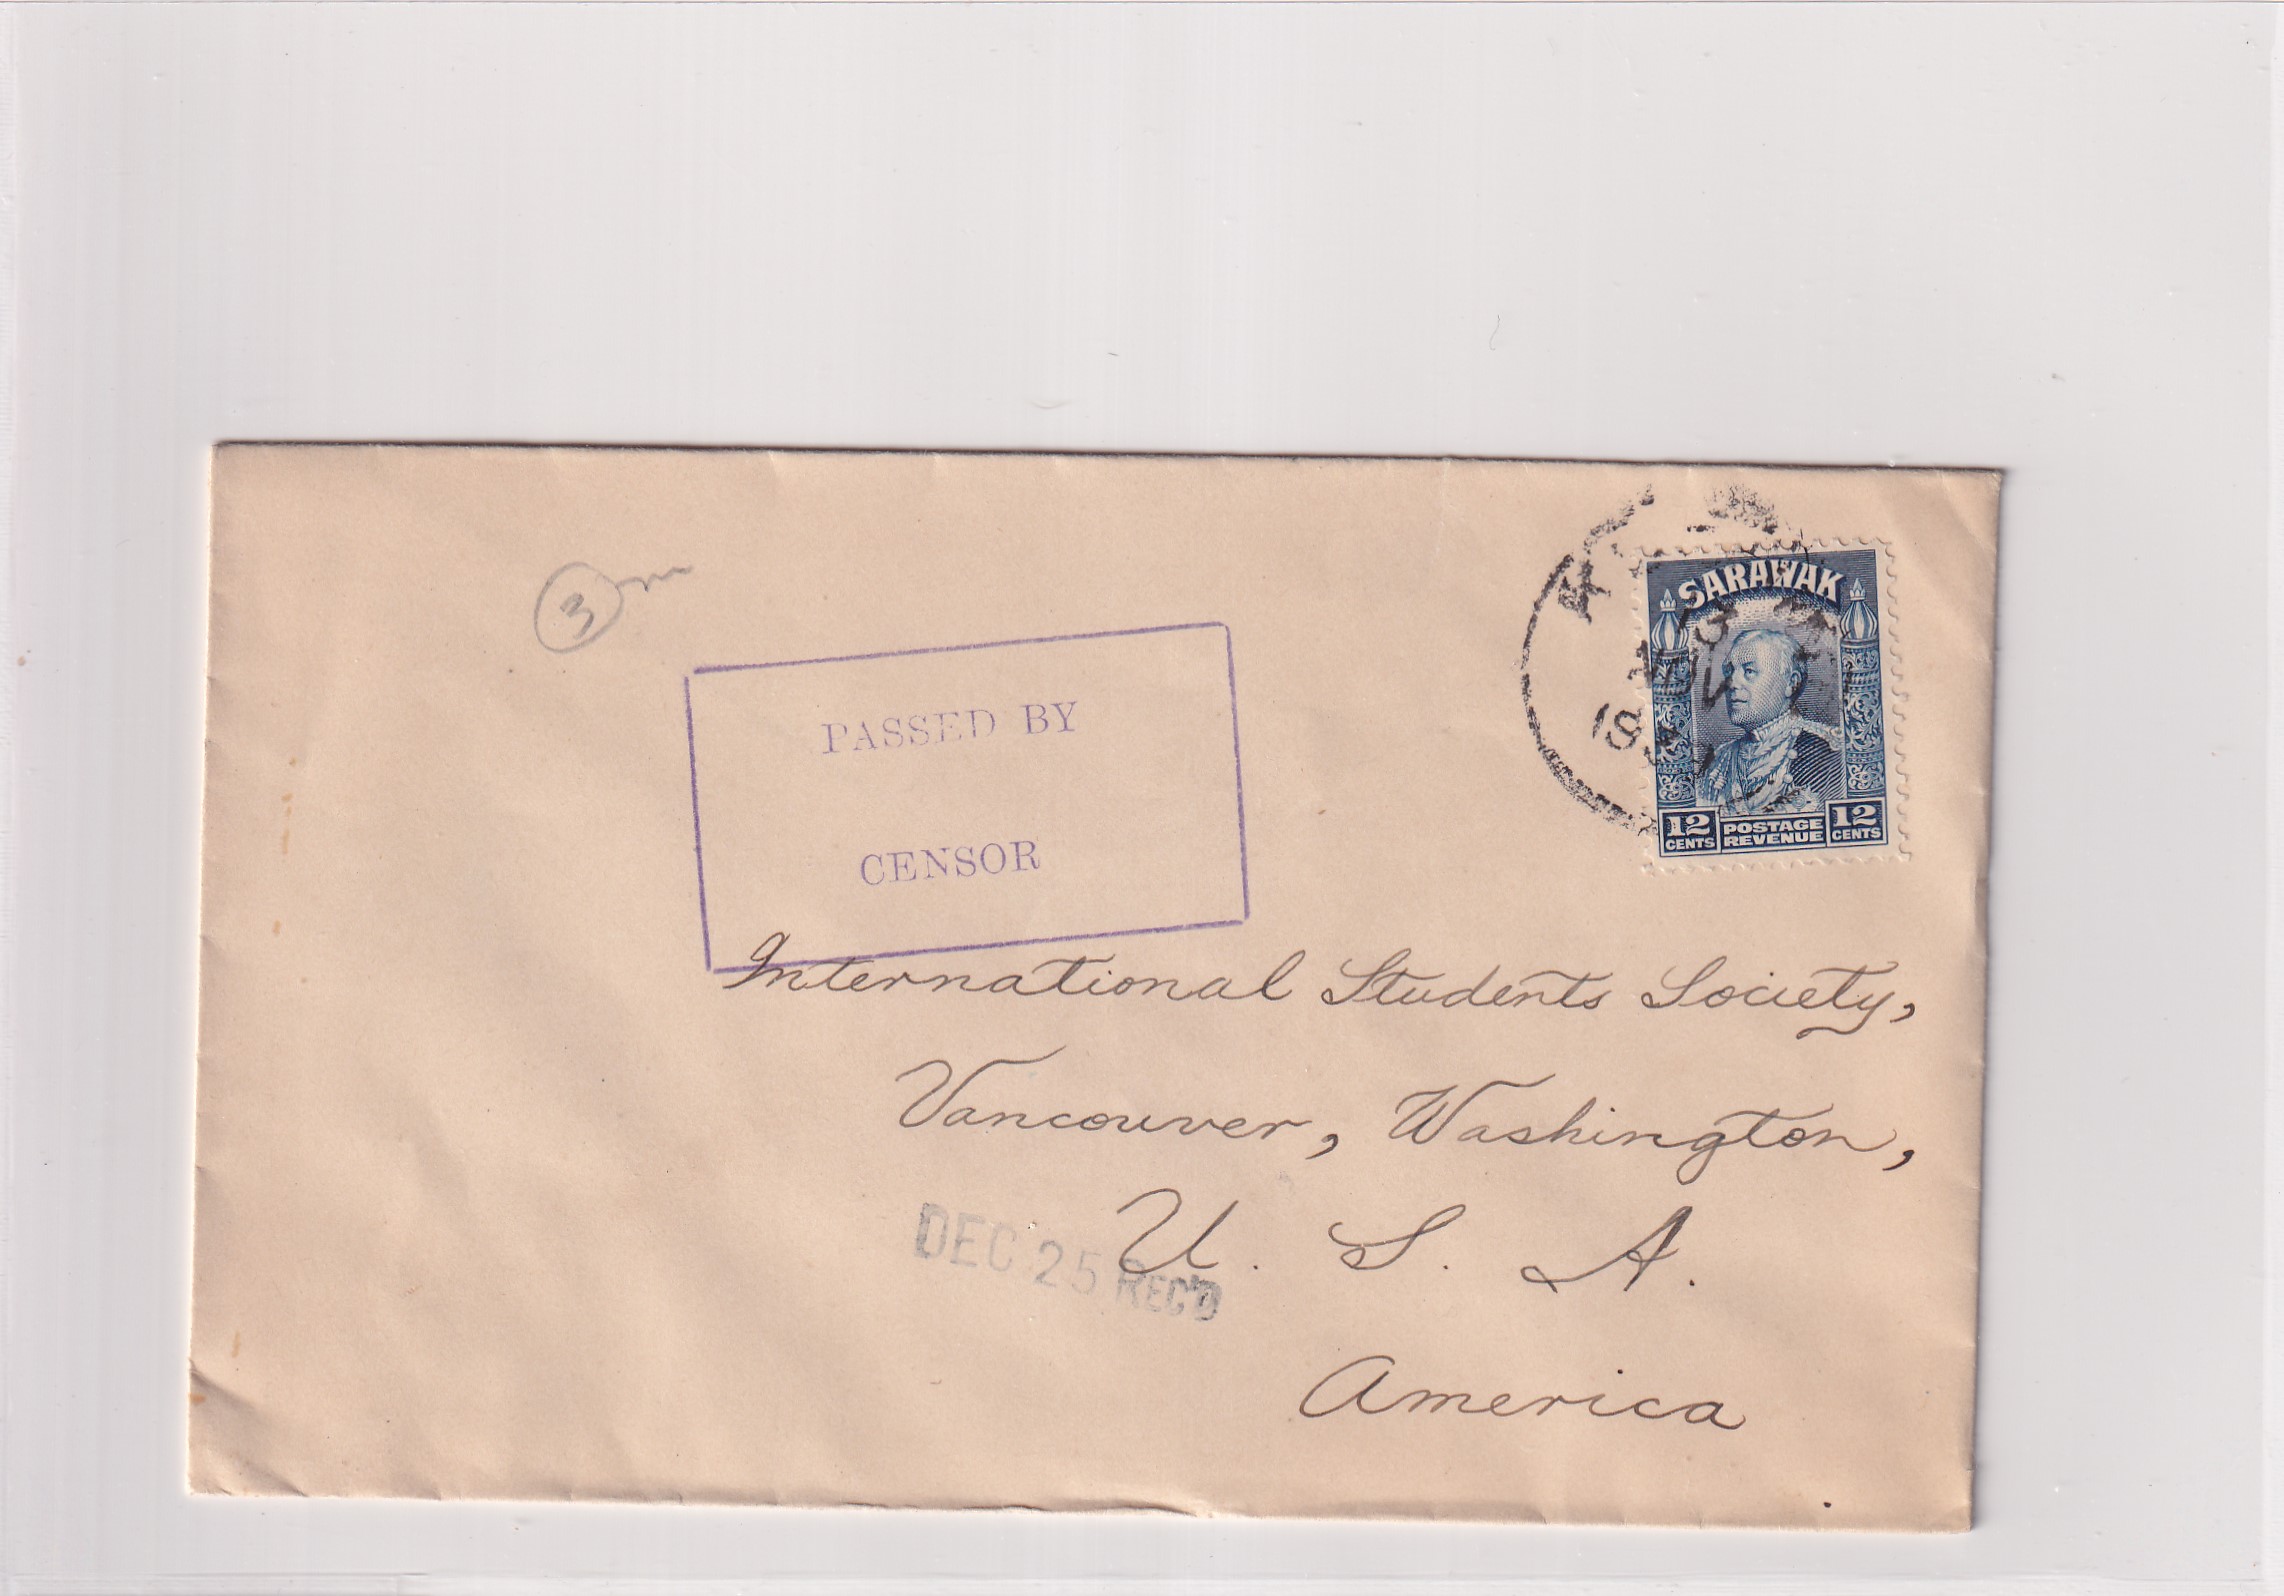 3
SARAWAK
13
NOV
12 CENTS
POSTAGE REVENUE
12 CENTS
PASSED BY
CENSOR
International Students Society,
Vancouver, Washington,
U. S. A.
America
DEC 25 REC'D